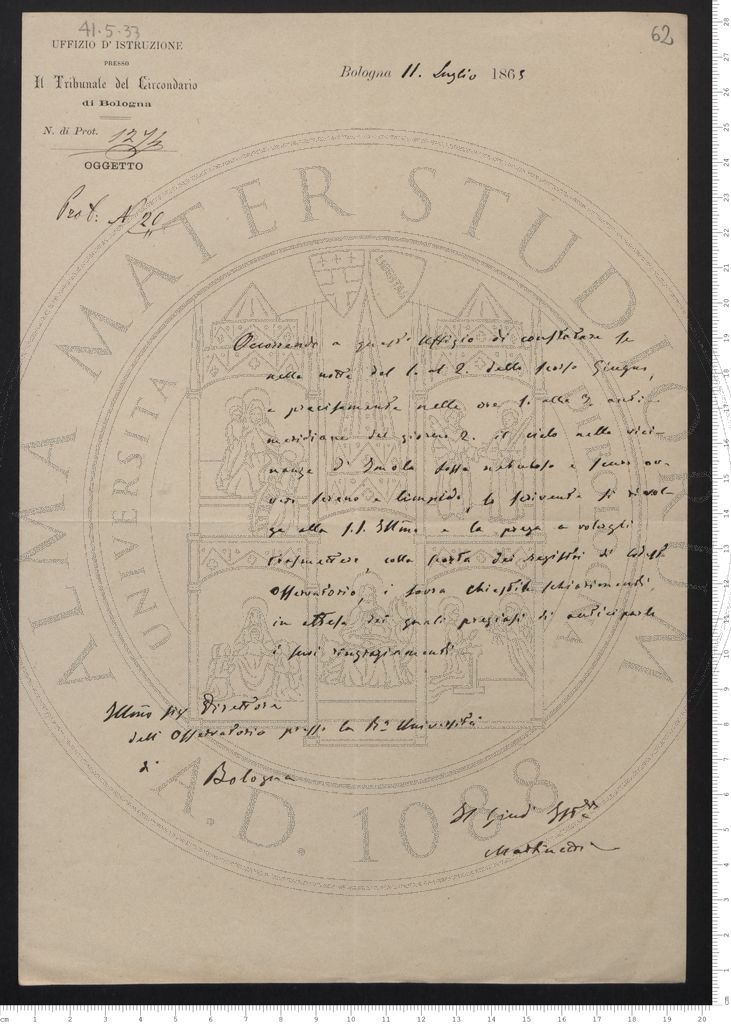 41-5-33
62
UFFIZIO D' ISTRUZIONE
PRESSO
Il Tribunale del Circondario
di Bologna
Bologna 11. Luglio 186
N. di Prot.
OGGETTO
Prot. N. 20
Occorrendo a questo Uffizio di constatare se
nella notte del 1. al 2. dello scorso Giugno,
e precisamente nelle ore 1. alle 3. anti-
meridiane del giorno 2. il cielo nelle vici-
nanze d' Imola fosse nebuloso e scuro ov-
vero sereno e limpido, lo scrivente si rivol-
ge alla S.S. Illma e la prega a volergli
trasmettere, colla scorta dei registri di
Osservatorio, i sovra chiestile schiarimenti,
in attesa dei quali pregiasi di anticiparle
i suoi ringraziamenti
Illmo Sig Direttore
dell' Osservatorio presso la Ra Università
di Bologna
Il Giud
ALMA MATER STUDIORUM
UNIVERSITA
LIBERTAS
A.D. 1088